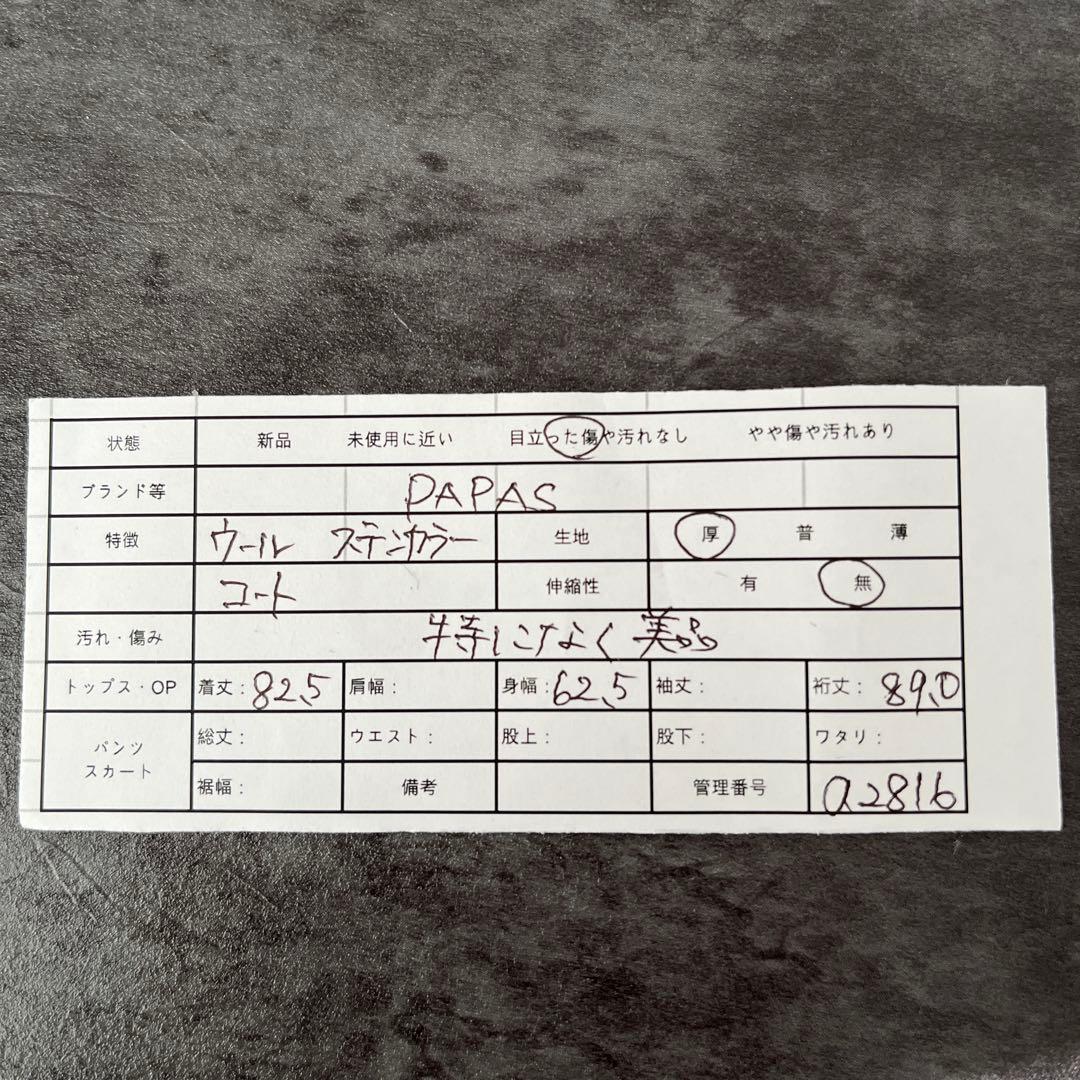 状態 新品 未使用に近い 目立った傷や汚れなし やや傷や汚れあり
ブランド等 PAPAS
特徴 ウール ステンカラー 生地 厚 普 薄
コート 伸縮性 有 無
汚れ・傷み 特になく 美品
トップス・OP 着丈:82.5 肩幅: 身幅:62.5 袖丈: 裄丈:89.0
パンツ スカート 総丈: ウエスト: 股上: 股下: ワタリ:
裾幅: 備考 管理番号 a2816